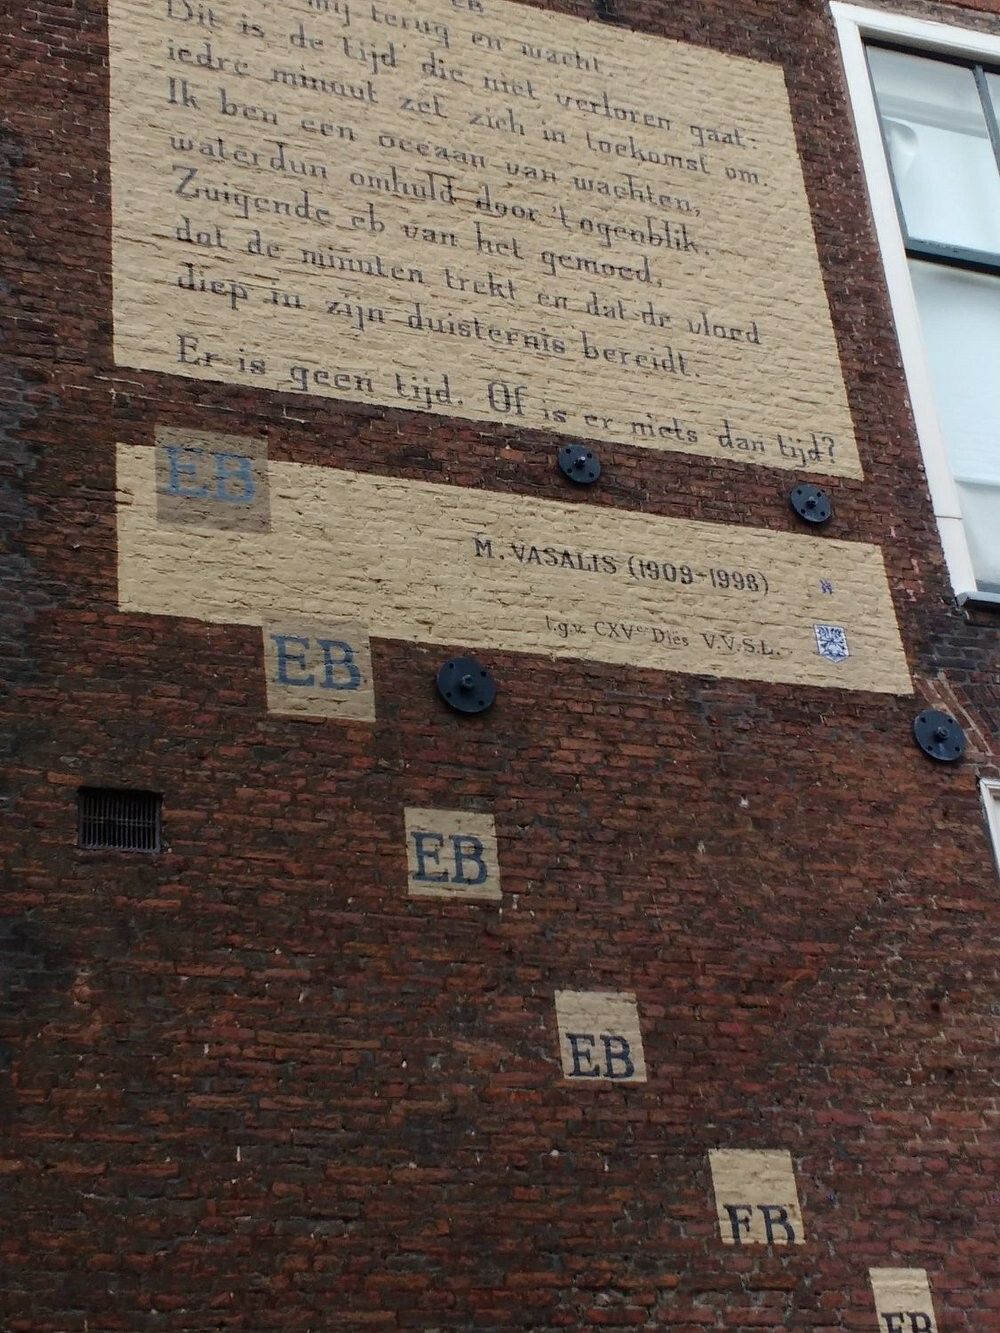 EB
mij terug en wacht.
Dit is de tijd die niet verloren gaat:
iedre minuut zet zich in toekomst om.
Ik ben een oceaan van wachten,
waterdun omhuld door 't ogenblik.
Zuigende eb van het gemoed,
dat de minuten trekt en dat de vloed
diep in zijn duisternis bereidt.
Er is geen tijd. Of is er niets dan tijd?
EB
M. VASALIS (1909-1998)
t.g.v. CXVde Dies V.V.S.L.
EB
EB
EB
EB
EB